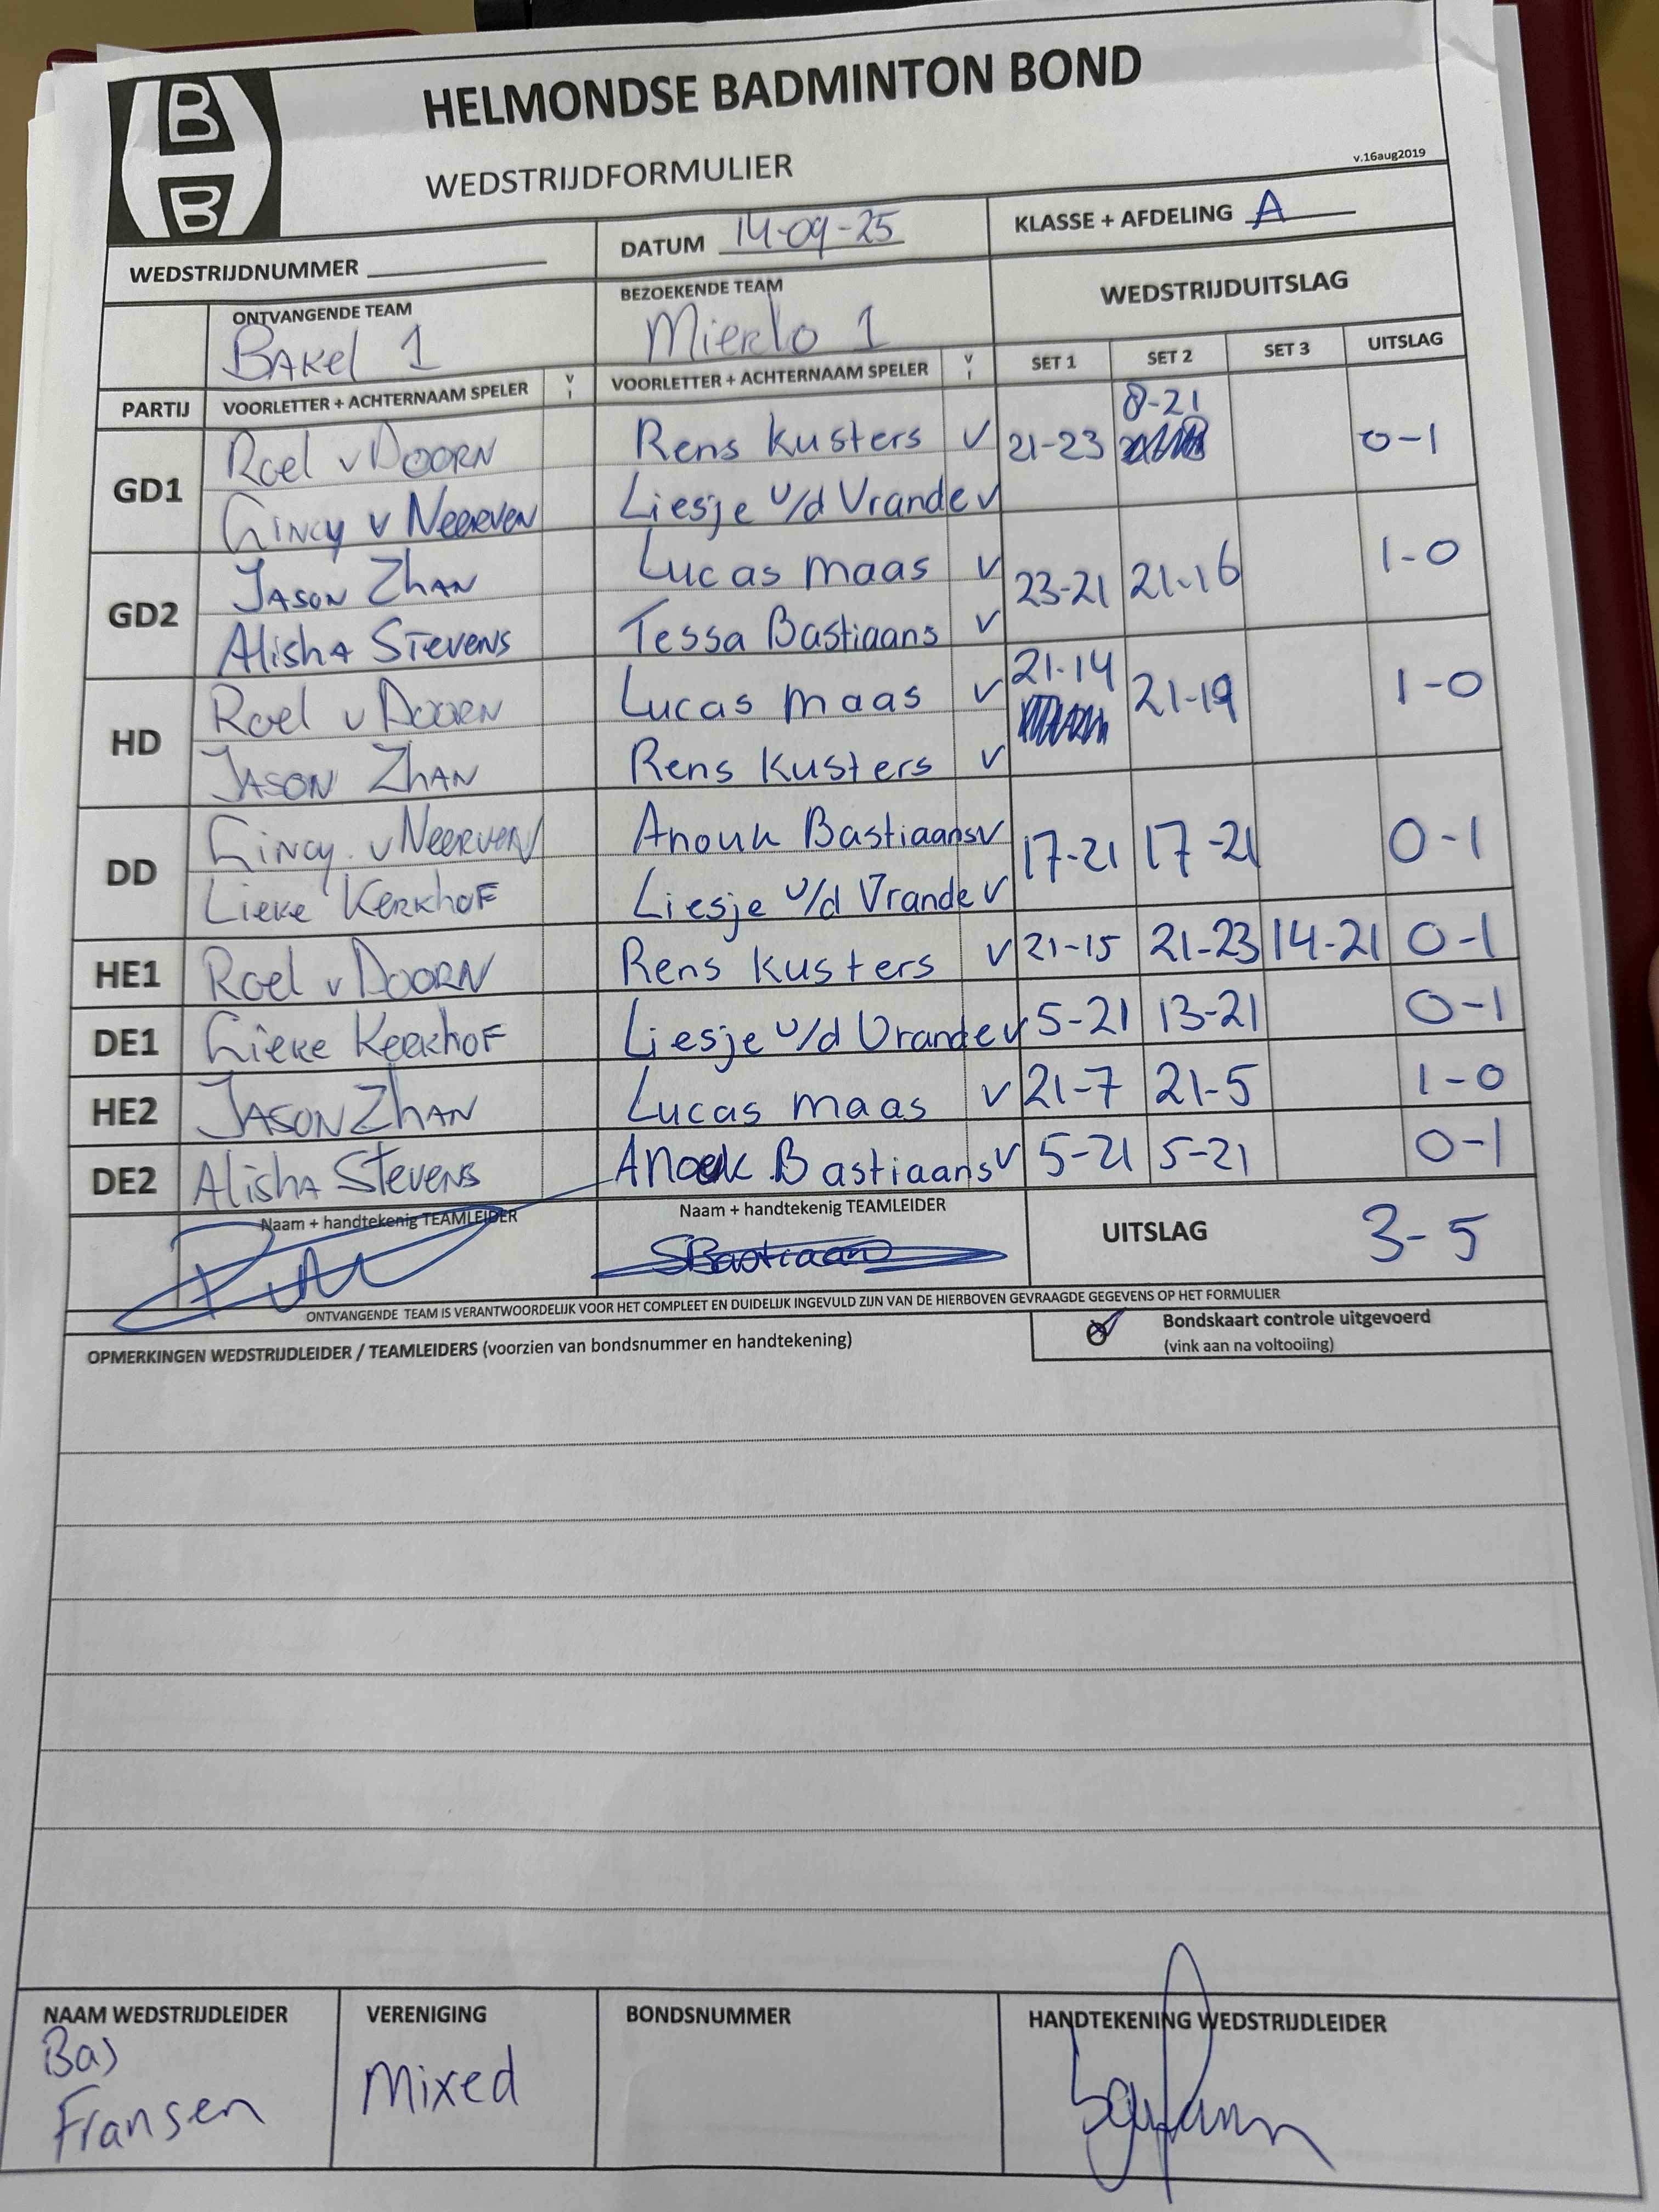 B
B
HELMONDSE BADMINTON BOND
WEDSTRIJDFORMULIER
v.16aug2019
WEDSTRIJDNUMMER
DATUM 14-09-25
KLASSE + AFDELING A
ONTVANGENDE TEAM
BAKEL 1
BEZOEKENDE TEAM
Mierlo 1
WEDSTRIJDUITSLAG
PARTIJ VOORLETTER + ACHTERNAAM SPELER V I VOORLETTER + ACHTERNAAM SPELER V I SET 1 SET 2 SET 3 UITSLAG
GD1 Roel v DOORN Rens Kusters v 21-23 8-21 0-1
v NEERVEN Liesje v/d Vrande v
GD2 JASON ZHAN Lucas Maas v 23-21 21-16 1-0
Alisha STEVENS Tessa Bastiaans v
HD Roel v DOORN Lucas Maas v 21-14 21-19 1-0
JASON ZHAN Rens Kusters v
DD v NEERVEN Anouk Bastiaans v 17-21 17-21 0-1
Lieke Kerkhof Liesje v/d Vrande v
HE1 Roel v DOORN Rens Kusters v 21-15 21-23 14-21 0-1
DE1 Lieke Kerkhof Liesje v/d Vrande v 5-21 13-21 0-1
HE2 JASON ZHAN Lucas Maas v 21-7 21-5 1-0
DE2 Alisha Stevens Anouk Bastiaans v 5-21 5-21 0-1
Naam + handtekenig TEAMLEIDER
Naam + handtekenig TEAMLEIDER
SBastiaans
UITSLAG 3-5
ONTVANGENDE TEAM IS VERANTWOORDELIJK VOOR HET COMPLEET EN DUIDELIJK INGEVULD ZIJN VAN DE HIERBOVEN GEVRAAGDE GEGEVENS OP HET FORMULIER
OPMERKINGEN WEDSTRIJDLEIDER / TEAMLEIDERS (voorzien van bondsnummer en handtekening)
Bondskaart controle uitgevoerd
(vink aan na voltooiing)
NAAM WEDSTRIJDLEIDER
Bas
Fransen
VERENIGING
Mixed
BONDSNUMMER
HANDTEKENING WEDSTRIJDLEIDER